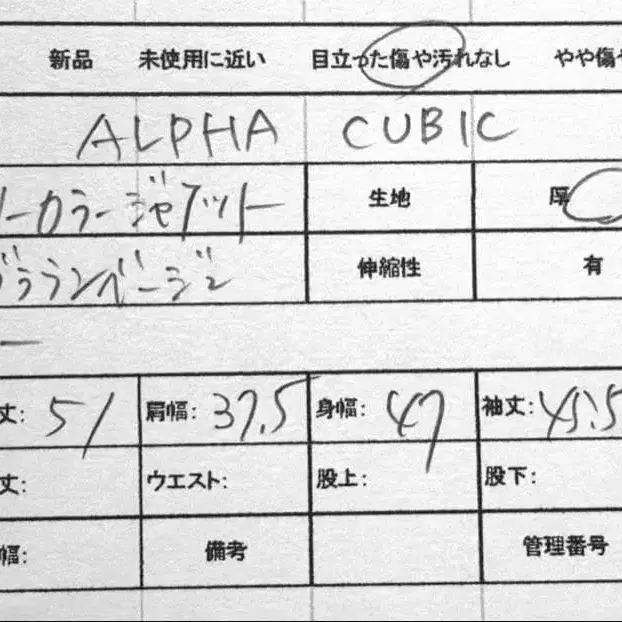 新品 未使用に近い 目立った傷や汚れなし やや傷や
ALPHA CUBIC
ーカラージャケット 生地 厚
ブラウンベージュ 伸縮性 有
ー
丈: 51 肩幅: 37.5 身幅: 47 袖丈: 45.5
丈: ウエスト: 股上: 股下:
幅: 備考 管理番号